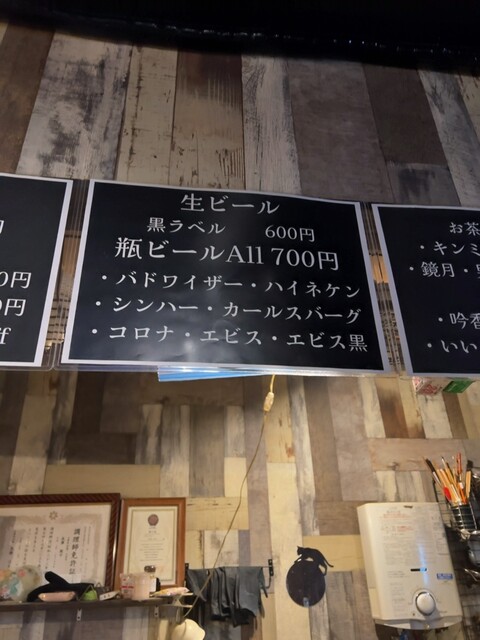 円
0円
0円
ff
生ビール
黒ラベル 600円
瓶ビールAll 700円
・バドワイザー・ハイネケン
・シンハー・カールスバーグ
・コロナ・エビス・エビス黒
お茶
・キンミ
・鏡月・
・吟香
・いい
調理師免許証